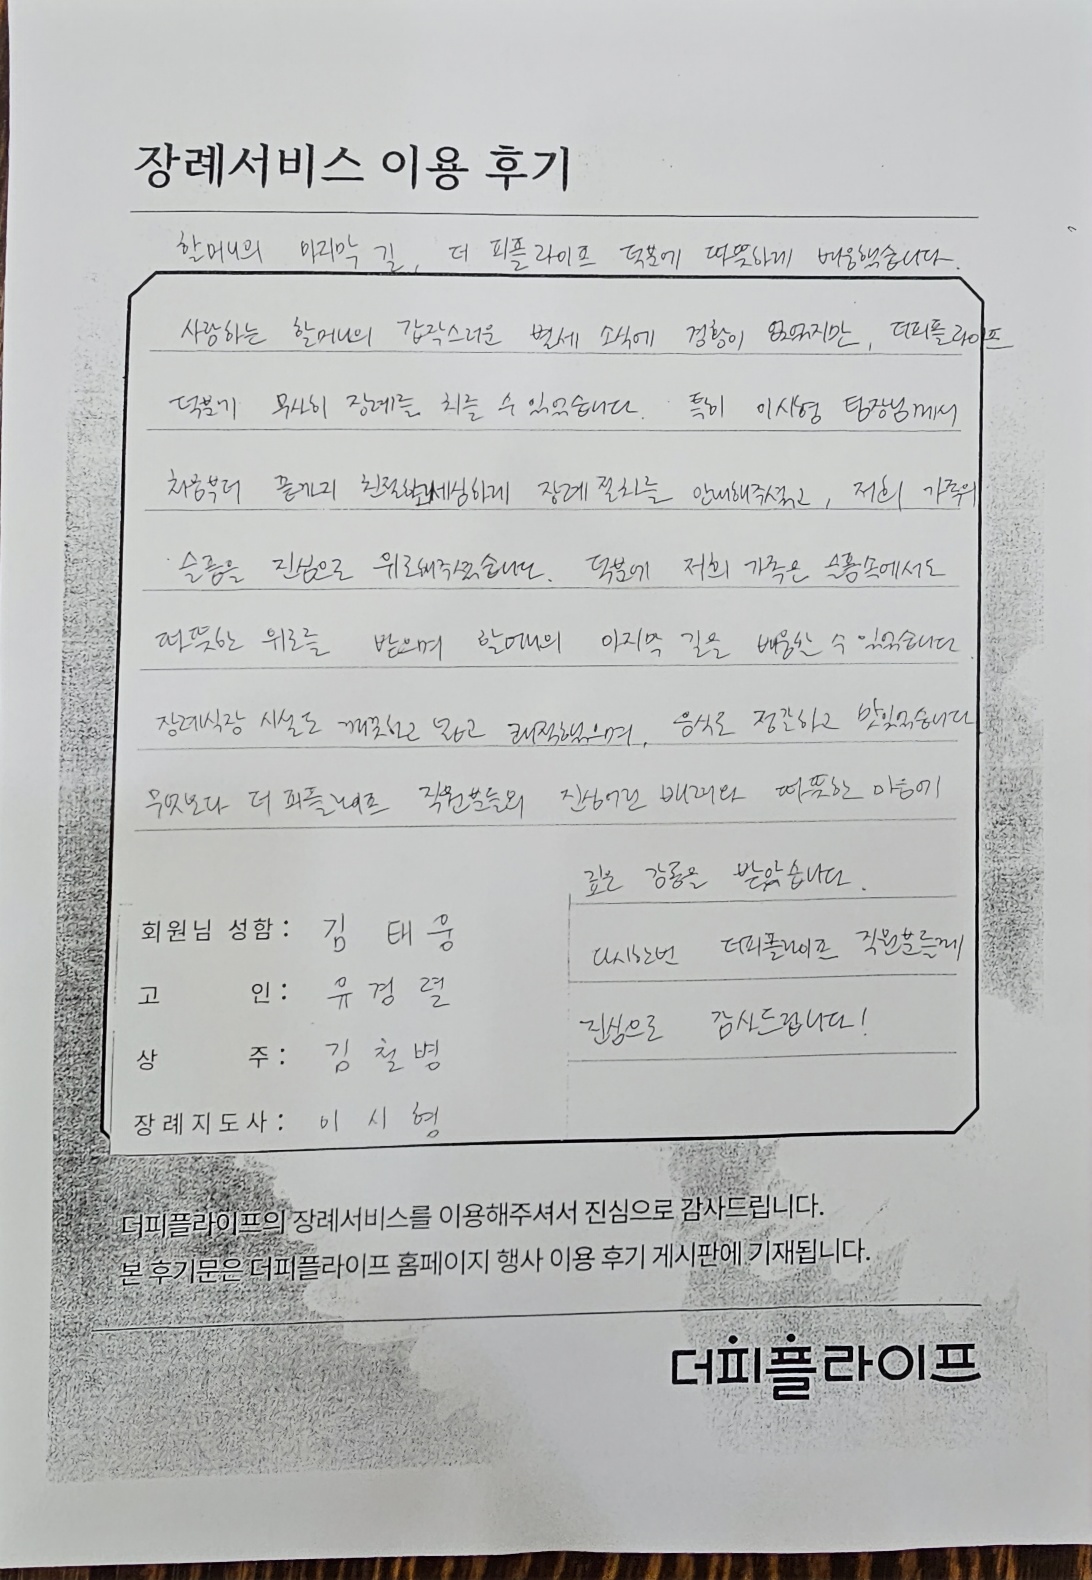 장례서비스 이용 후기
할머니의 마지막 길, 더 피플라이프 덕분에 따뜻하게 배웅했습니다.
사랑하는 할머니의 갑작스러운 별세 소식에 경황이 없었지만, 더피플라이프
덕분에 무사히 장례를 치를 수 있었습니다. 특히 이시형 팀장님께서
처음부터 끝까지 친절하고 세심하게 장례 절차를 안내해주셨고, 저희 가족의
슬픔을 진심으로 위로해주셨습니다. 덕분에 저희 가족은 슬픔속에서도
따뜻한 위로를 받으며 할머니의 마지막 길을 배웅할 수 있었습니다.
장례식장 시설도 깨끗하고 넓고 쾌적했으며, 음식도 정갈하고 맛있었습니다
무엇보다 더 피플라이프 직원분들의 진심어린 배려와 따뜻한 마음에
깊은 감동을 받았습니다.
다시한번 더피플라이프 직원분들께
진심으로 감사드립니다!
회원님 성함: 김태웅
고 인: 유경렬
상 주: 김철병
장례지도사: 이시형
더피플라이프의 장례서비스를 이용해주셔서 진심으로 감사드립니다.
본 후기문은 더피플라이프 홈페이지 행사 이용 후기 게시판에 기재됩니다.
더피플라이프